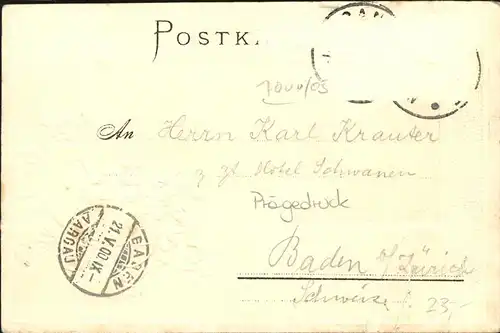 POSTK.
7000/05
An Herrn Karl Krauter
z zt Hotel Schwanen
Prägedruck
Baden b/Zürich
Schweiz 23,-
BADEN
21.V.00.IX-
AARGAU